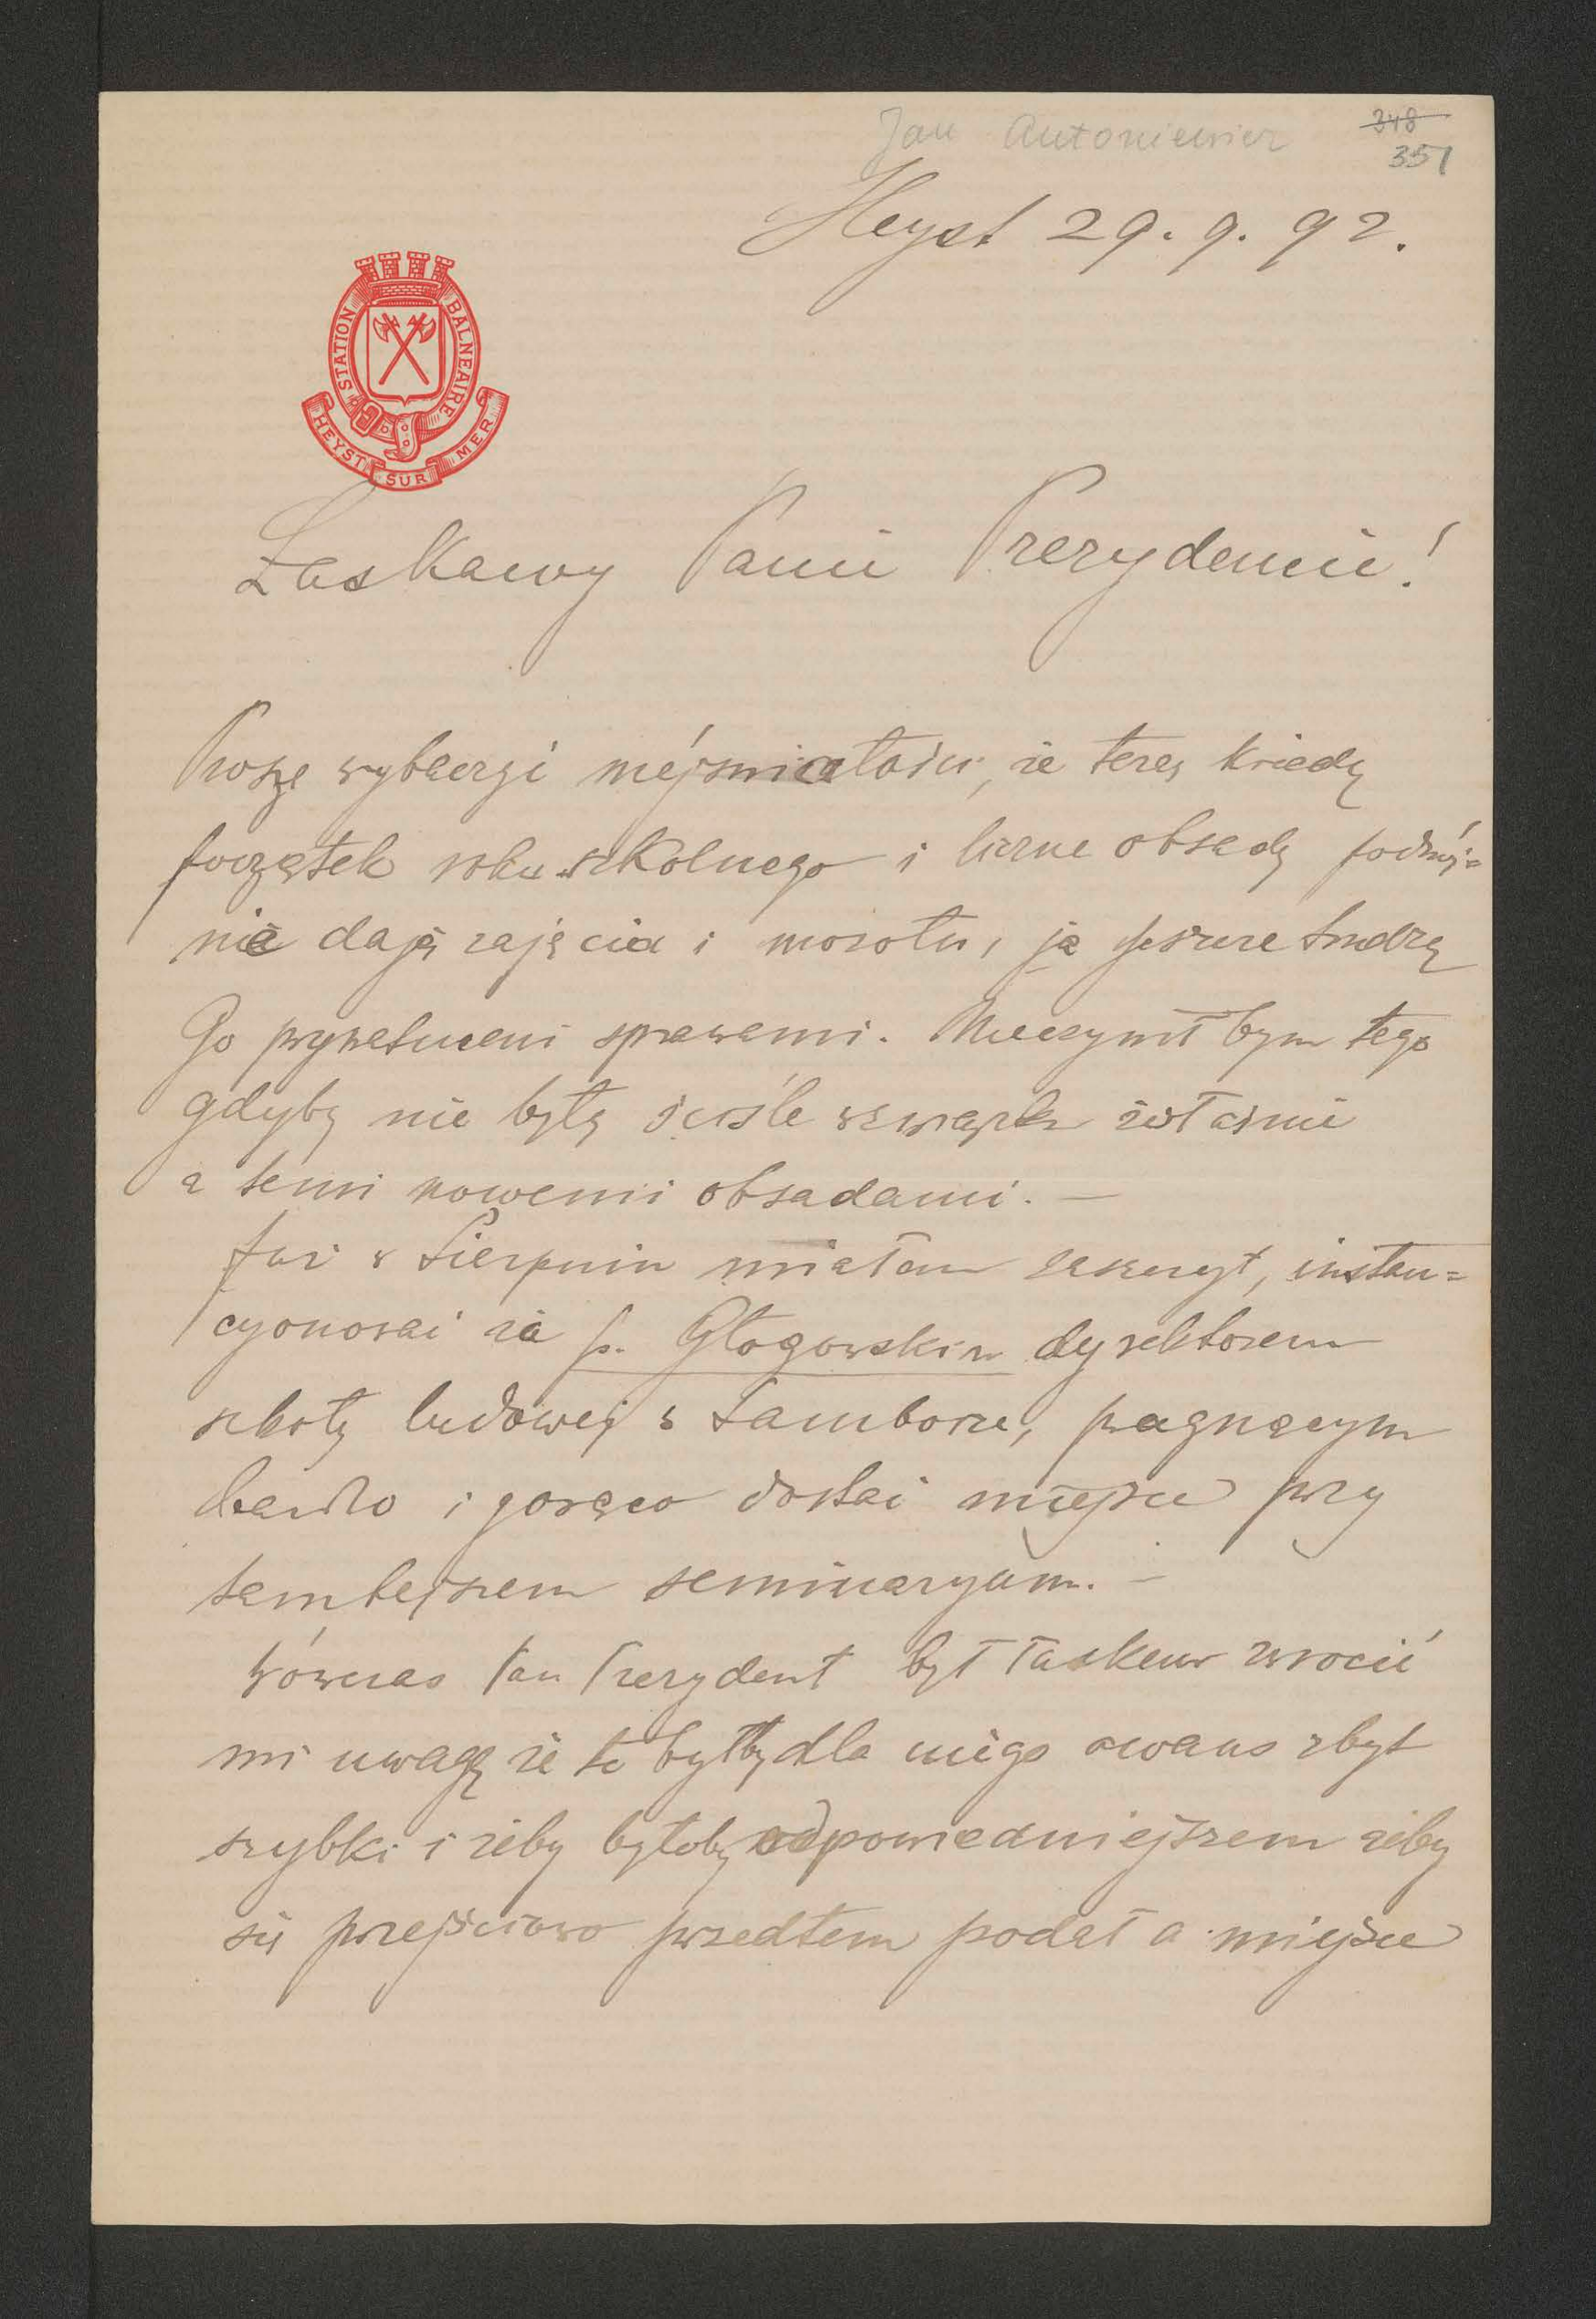 Jan Antoniewicz
348
351
Heyst 29. 9. 92.
STATION BALNEAIRE
HEYST SUR MER
Łaskawy Panie Prezydencie!
Proszę wybaczyć mej śmiałości, że teraz kiedy
początek roku szkolnego i liczne obsady podwój=
nie dają zajęcia i mozołu, ja jeszcze trudzę
Go prywatnemi sprawami. Nieczynił bym tego
gdyby nie były ściśle w związku właśnie
z temi nowemi obsadami. —
Już w Sierpniu miałem zaszczyt, instan=
cyonować za p. Głogowskim dyrektorem
szkoły ludowej w Samborze, pragnącym
bardzo i gorąco dostać miejsce przy
tamtejszem seminaryum. —
Wówczas Pan Prezydent był łaskaw zwrócić
mi uwagę że to byłby dla niego awans zbyt
szybki i żeby byłoby odpowiedniejszem żeby
się przejściowo przedtem podał o miejsce